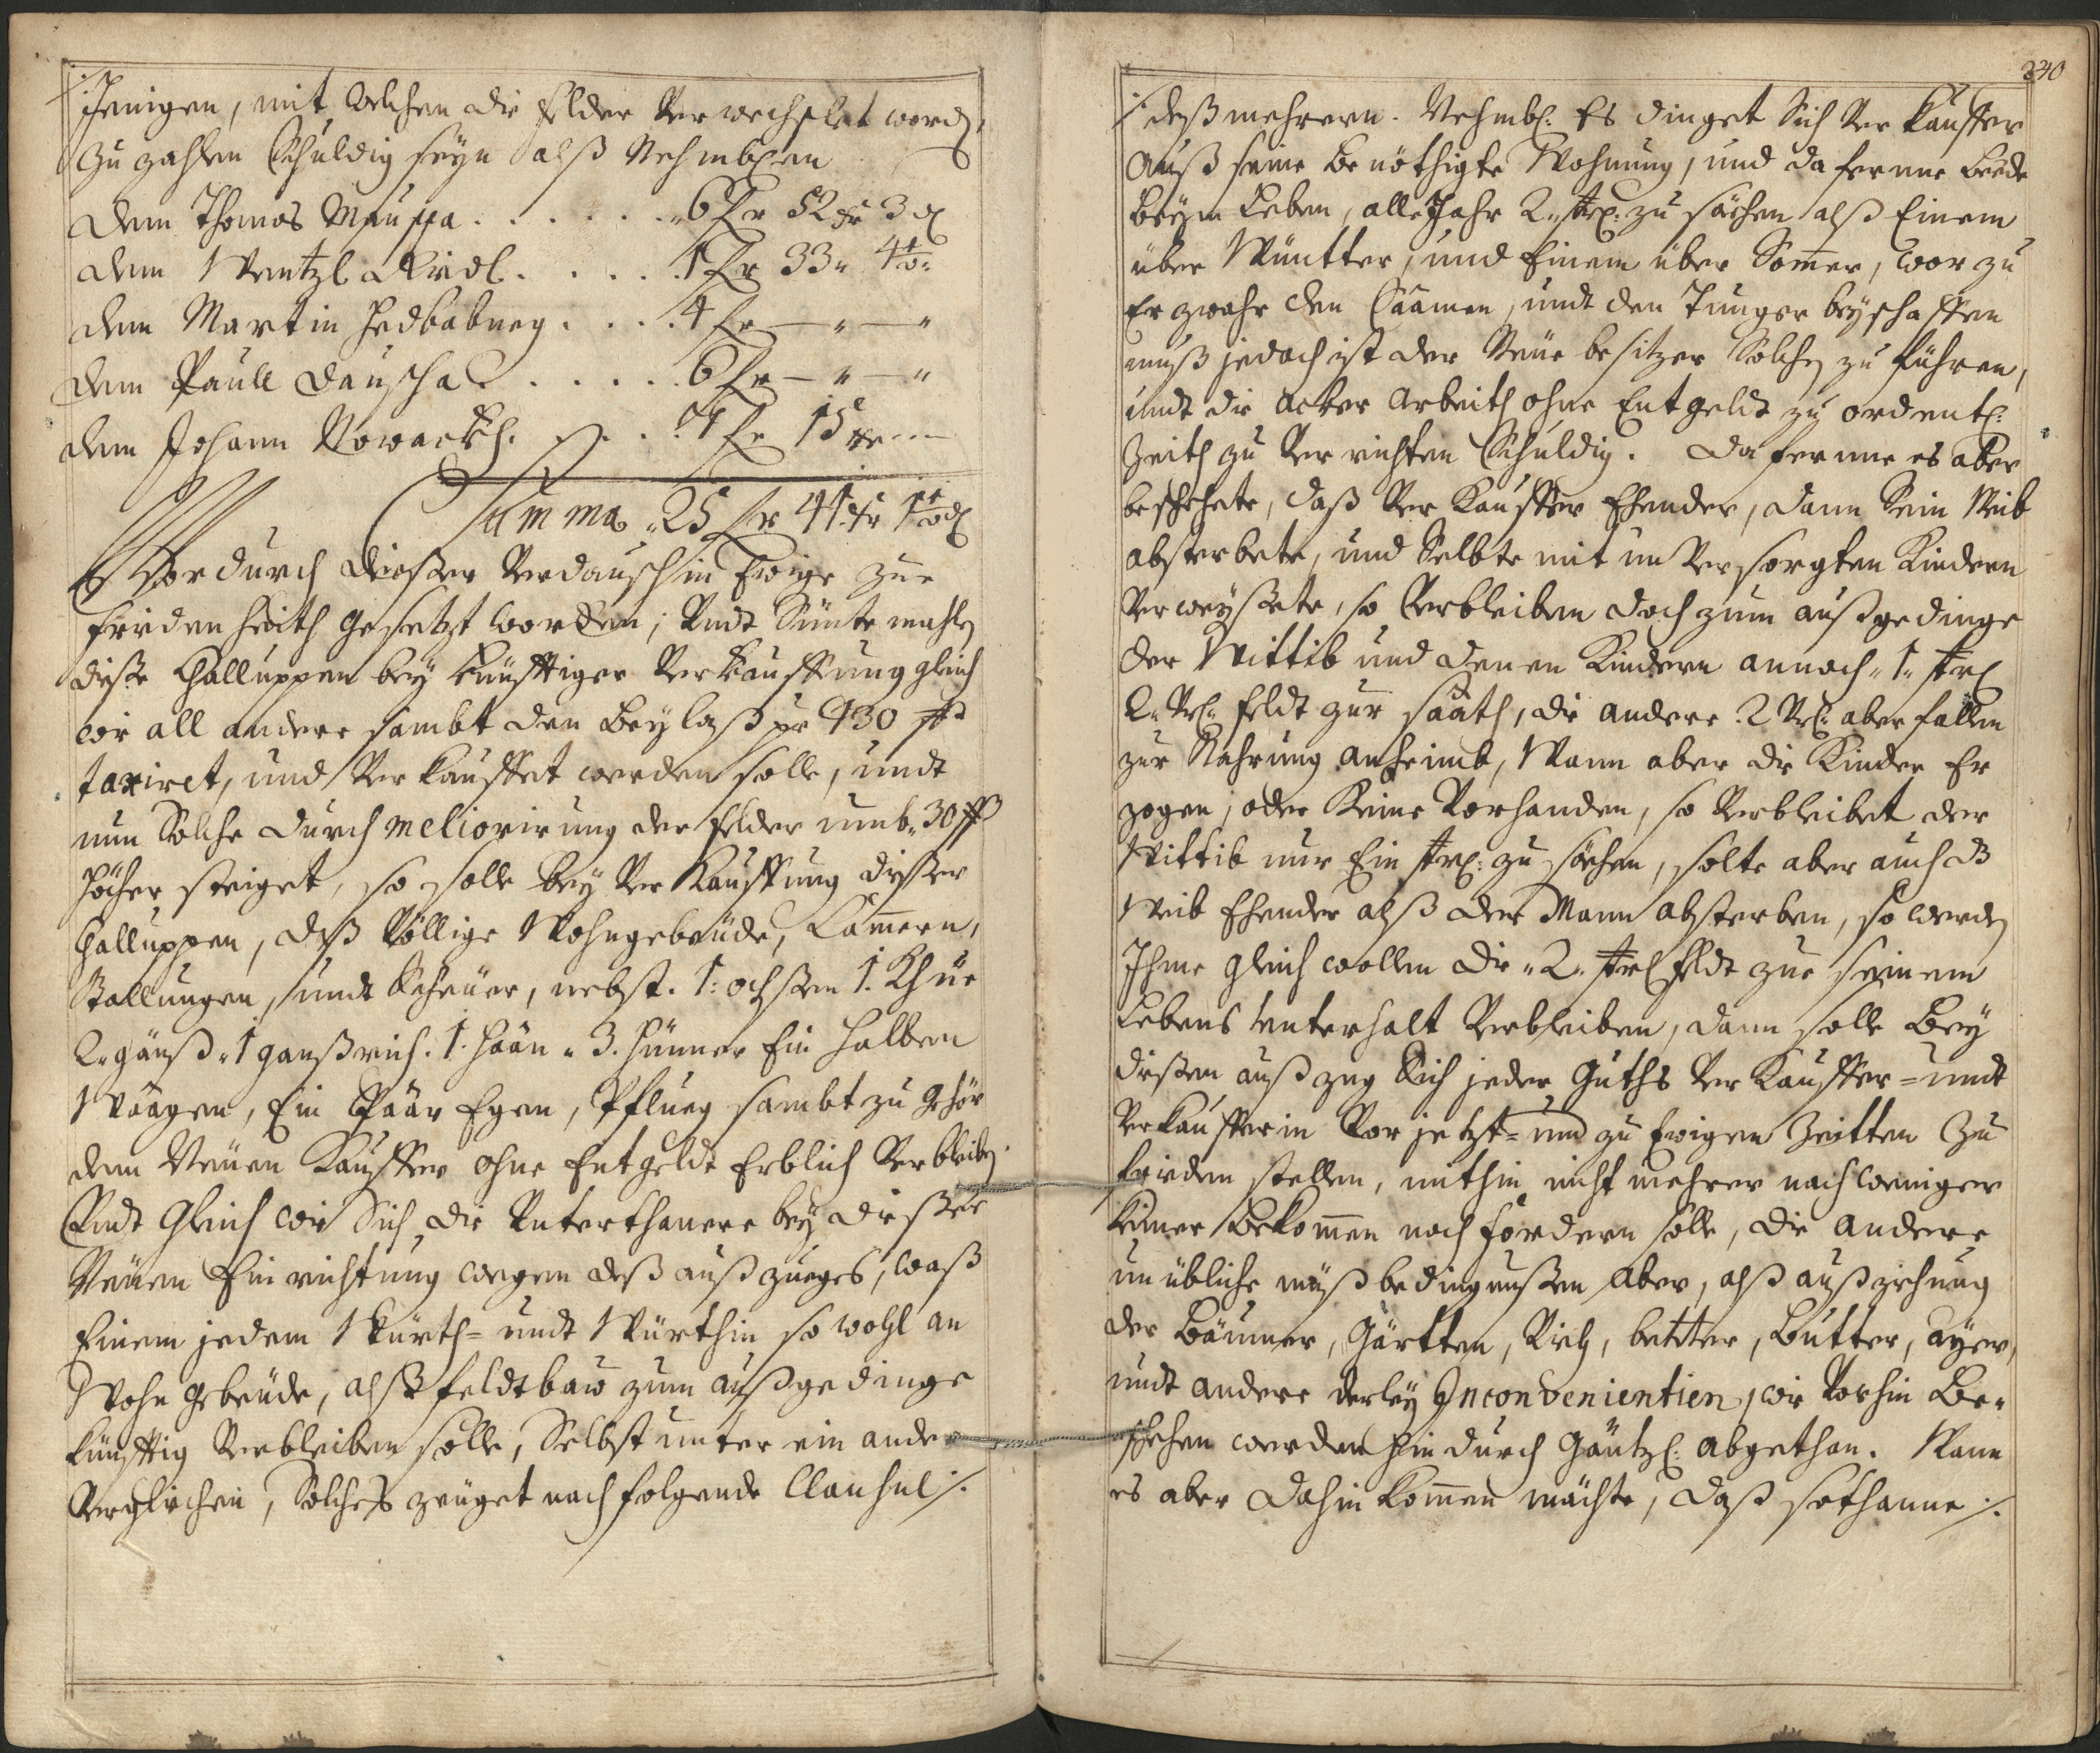 Jenigen, mit welchen die felder verwechslet word,
zu zahlen schuldig seyn alß Nehmblichen
dem Thomas . . . . . . 6 fr 52 xr 3 d
dem Wentzl . . . . . 1 fr 33 " 4
dem Martin Hedbabneg . . . . 4 fr — " — "
dem Paull Dauscha . . . . . 6 fr — " — "
dem Johann Nowackh. . . . 7 fr 15 xr —
Summa. 25 fr 41 xr 1 d
Wordurch dießer Verdausch in Ewige zue
friedenheith gesetzt worden; Undt Sünte mahle
dieße Challuppen bey künfftiger Verkauffung gleich
wie all andere sambt den Beylaß pr 430 ß
taxiret, und Verkauffet werden solle, undt
nun Solche durch meliorirung der felder umb 30 ß
höcher steiget, so solle bey Verkauffung dießer
Challuppen, daß Völlige Wohngebeüde, Cammern,
Stallungen, undt Scheüer, nebst. 1: ochßen 1. Khüe
2. gänß. 1 ganßrich. 1. Haan. 3. Hünner Ein halben
Waagen, Ein Paar Egen, Pflueg sambt zu gehör
dem Neüen Kauffer ohne Entgeldt Erblich Verbleiben
Undt Gleich wie Sich die Unterthanere bey dießer
Neüen Einrichtung wegen deß außzueges, waß
Einem jedem Würth= undt Würthin so wohl an
Wohn gebeüde, alß feldtbau zum außgedinge
künfftig Verbleiben solle, Selbst unter ein ander
Verglichen, Solches zeüget nachfolgende Clausul ./.
240
./. deß mehrern. Nehmbl: Es dinget Sich Verkauffer
Auß seine benöthigte Wohnung, und daferne beede
beym Leben, alle Jahr 2. str: zu säehen alß Einem
über Wüntter, und Einem über Sommer, worzu
Er zwahr den Saamen, undt den Tunger beyschaffen
muß jedoch ist der Neüe besitzer Solche zu führen,
undt die acker Arbeith ohne Entgeldt zu ordentl:
Zeith zu Verrichten Schuldig. Daferne es aber
beschehete, daß Verkauffer Ehender, dann Sein Weib
absterbete, und Selbte mit unversorgten Kindern
Verweyßete, so Verbleiben doch zum außgedinge
der Wittib und denen Kindern annoch. 1. str:
2. Vrl: feldt zur saath, die andere 2 Vrl: aber fallen
zur Nahrung anheimb, Wann aber die Kinder Er
zogen, oder Keine Vorhanden, so Verbleibet der
Wittib nur Ein str: zu säehen, solte aber auch ds
Weib Ehender alß der Mann absterben, so werden
Ihme gleich wollen die. 2. str: feldt zue seinem
Lebens Unterhalt Verbleiben, dann solle Bey
dießen außzug Sich jeder Guths Verkauffer= undt
Verkaufferin Vor jetzt= und zu Ewigen Zeitten zu
frieden stellen, mithin nicht mehrer noch weniger
keiner bekommen noch fordern solle, die andere
unübliche müßbedingnußen aber, alß außziehung
der Bäumer, Gärtten, Vieh, better, Butter, ayer,
undt andere derley Inconvenientien, wie Vorhin Be=
schehen werden hindurch gäntzl: abgethan. Wann
es aber dahin kommen mächte, daß sothanne ./.